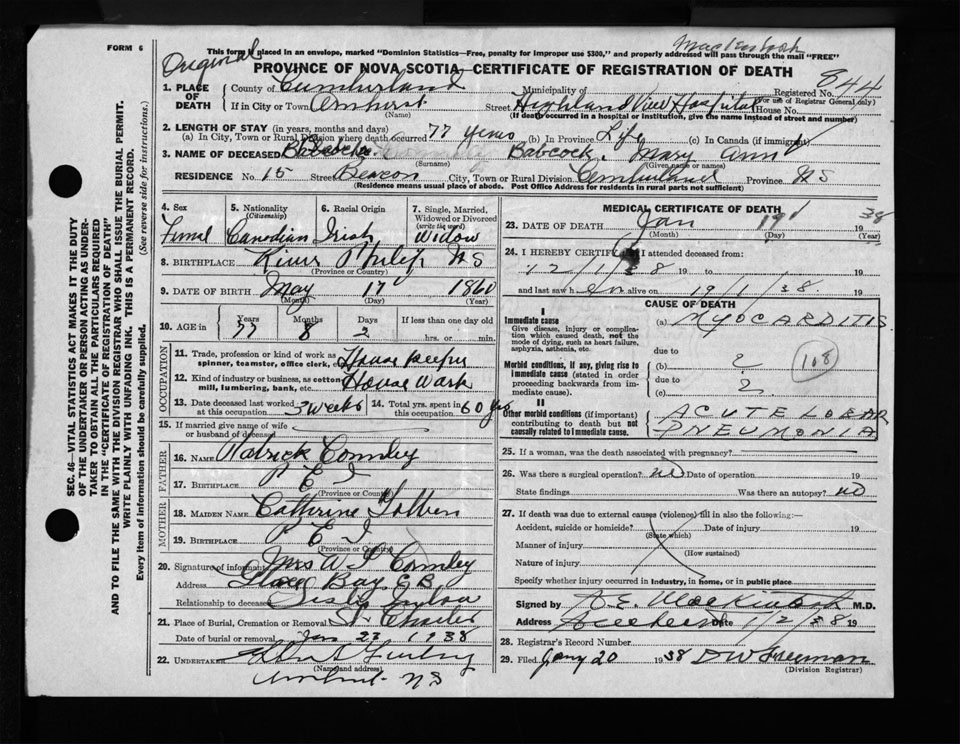 FORM 6
This form if placed in an envelope, marked "Dominion Statistics—Free, penalty for improper use $300," and properly addressed will pass through the mail "FREE"
Original
PROVINCE OF NOVA SCOTIA—CERTIFICATE OF REGISTRATION OF DEATH
1. PLACE OF DEATH
County of Cumberland Municipality of Registered No. 844
(For use of Registrar General only)
If in City or Town Amherst Street Highland View Hospital House No.
(Name) (If death occurred in a hospital or institution, give the name instead of street and number)
2. LENGTH OF STAY (in years, months and days)
(a) In City, Town or Rural Division where death occurred 77 years (b) In Province Life (c) In Canada (if immigrant)
3. NAME OF DECEASED Babcock Babcock, Mary Ann
(Surname) (Given name or names)
RESIDENCE No. 15 Street Beacon City, Town or Rural Division Cumberland Province NS
(Residence means usual place of abode. Post Office Address for residents in rural parts not sufficient)
SEC. 46—VITAL STATISTICS ACT MAKES IT THE DUTY
OF THE UNDERTAKER OR PERSON ACTING AS UNDER-
TAKER TO OBTAIN ALL THE PARTICULARS REQUIRED
IN THE "CERTIFICATE OF REGISTRATION OF DEATH"
AND TO FILE THE SAME WITH THE DIVISION REGISTRAR WHO SHALL ISSUE THE BURIAL PERMIT.
WRITE PLAINLY WITH UNFADING INK. THIS IS A PERMANENT RECORD.
Every item of information should be carefully supplied. (See reverse side for instructions.)
4. Sex
Femal
5. Nationality
(Citizenship)
Canadian
6. Racial Origin
Irish
7. Single, Married,
Widowed or Divorced
(write the word)
Widow
8. BIRTHPLACE River Philip NS
(Province or Country)
9. DATE OF BIRTH May 17 1860
(Month) (Day) (Year)
10. AGE in Years Months Days If less than one day old
77 8 2 hrs. or min.
OCCUPATION
11. Trade, profession or kind of work as House keeper
spinner, teamster, office clerk, etc.
12. Kind of industry or business, as cotton House Work
mill, lumbering, bank, etc.
13. Date deceased last worked 3 weeks
at this occupation
14. Total yrs. spent in 60 yrs
this occupation
15. If married give name of wife
or husband of deceased
FATHER
16. Name Patrick Connley
17. Birthplace P E I
(Province or Country)
MOTHER
18. MAIDEN NAME Cathrine
19. BIRTHPLACE P E I
(Province or Country)
20. Signature of informant Mrs W Connley
Address Glace Bay C B
Relationship to deceased Sister Inlaw
21. Place of Burial, Cremation or Removal St Charles
Date of burial or removal Jan 22 1938
22. UNDERTAKER
(Name and address)
Amherst NS
MEDICAL CERTIFICATE OF DEATH
23. DATE OF DEATH Jan 19 1938
(Month) (Day) (Year)
24. I HEREBY CERTIFY that I attended deceased from:
12/1/38 19 to 19
and last saw her alive on 19/1/38. 19
CAUSE OF DEATH
I
Immediate cause
Give disease, injury or complica-
tion which caused death, not the
mode of dying, such as heart failure,
asphyxia, asthenia, etc.
(a) MYOCARDITIS
due to
Morbid conditions, if any, giving rise to
immediate cause (stated in order
proceeding backwards from im-
mediate cause).
(b) ?
due to
(c) ?
108
II
Other morbid conditions (if important)
contributing to death but not
causally related to immediate cause.
ACUTE LOBAR
PNEUMONIA
25. If a woman, was the death associated with pregnancy?
26. Was there a surgical operation? no Date of operation 19
State findings Was there an autopsy? no
27. If death was due to external causes (violence) fill in also the following:—
Accident, suicide or homicide? Date of injury 19
(State which)
Manner of injury
(How sustained)
Nature of injury
Specify whether injury occurred in industry, in home, or in public place
Signed by A.E. Mackintosh M.D.
Address Amherst Date 1/2/38 19
28. Registrar's Record Number
29. Filed Jany 20 1938 DW Freeman
(Division Registrar)